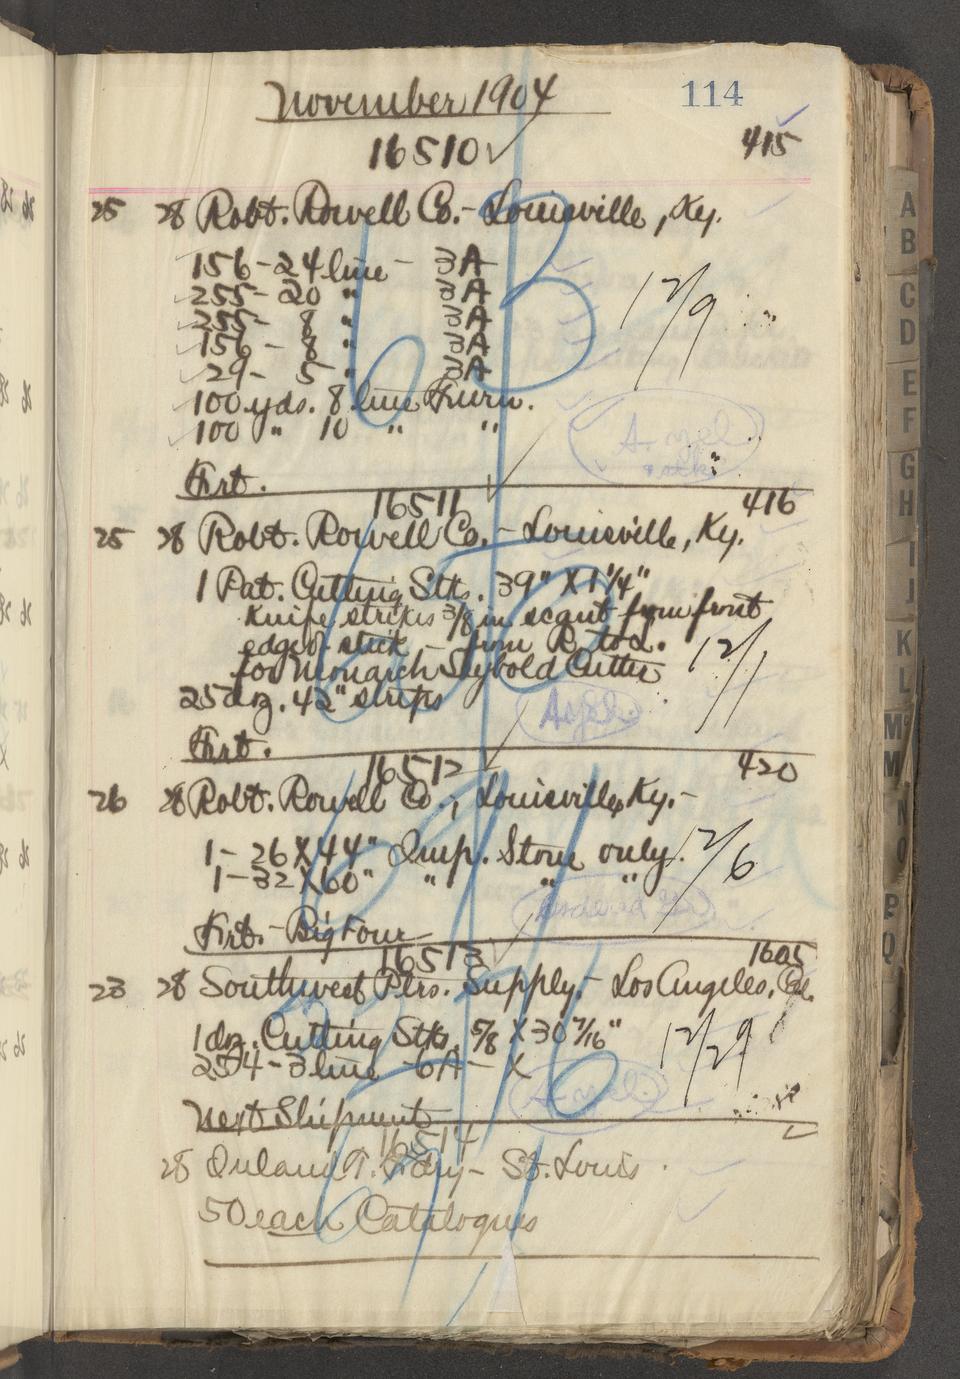 November 1904
114
16510 ✓
415
25 28 Robt. Rowell Co. - Louisville, Ky.
156 - 24 line - 3A
255 - 20 " 2A
255 - 8 " 2A
156 - 8 " 2A
29 - 5 " 2A
12/9
100 yds. 8 line Furn.
100 " 10 " "
Frt.
16511
416
25 28 Robt. Rowell Co. - Louisville, Ky.
1 Pat. Cutting Stk. 39" X 1 1/4"
Knife strikes 3/8 in scant from front
edge of stick - from R. to L.
for Monarch Seybold Cutter
12/1
25 doz. 42" strips
Frt.
16512
420
26 28 Robt. Rowell Co., Louisville, Ky. -
1 - 26 X 44" Imp. Stone only.
1 - 32 X 60" " " "
12/6
Frt. - Big Four
16513
1605
23 28 Southwest Ptrs. Supply. - Los Angeles, Cal.
1 doz. Cutting Stks. 5/8 X 30 7/16"
254 - 3 line - 6A - X
12/29
Next Shipment
16514
28 Inland T. Fdry - St. Louis
50 each Catalogues
A
B
C
D
E
F
G
H
I
J
K
L
M
M
N
O
P
Q